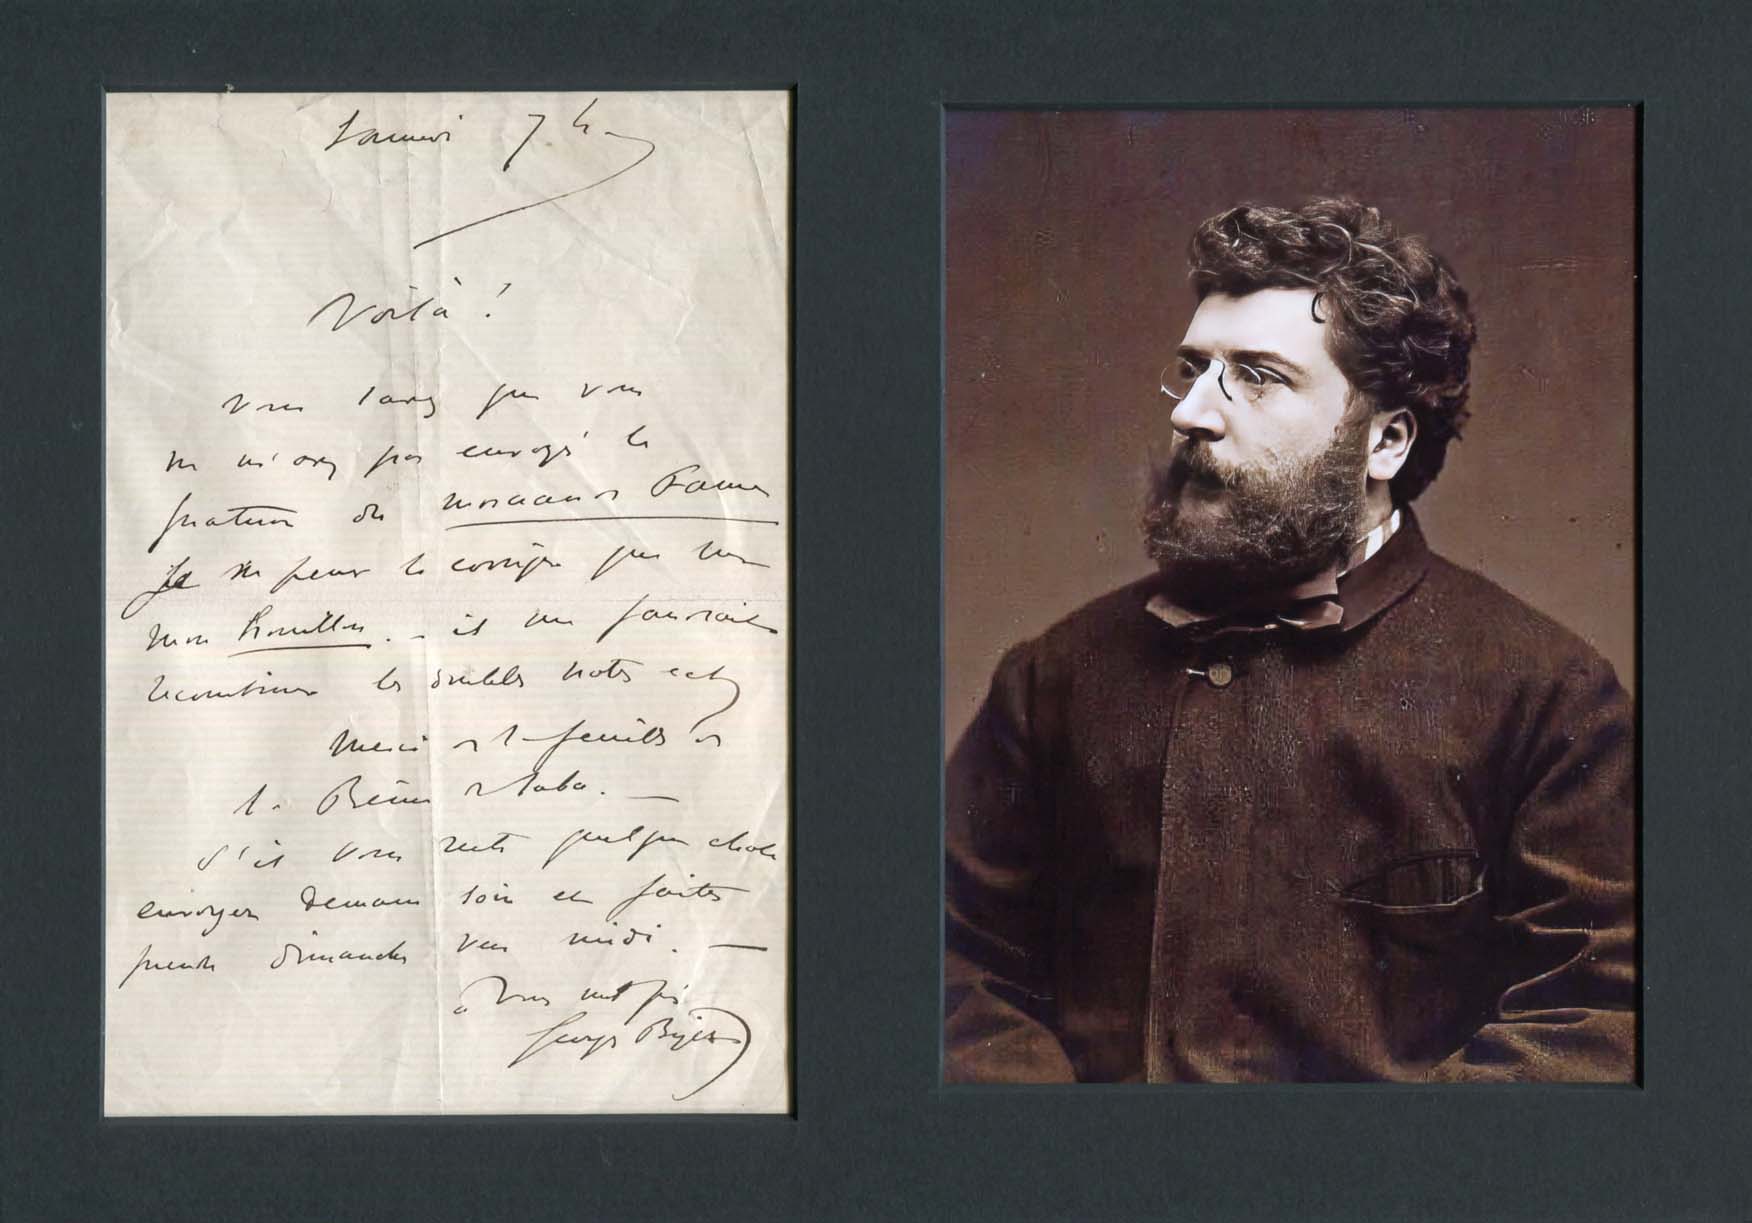 Samedi 7 h
Voilà !
Vous savez que vous
ne m'avez pas envoyé le
morceau de
Je ne peux le corriger que sur
mon brouillon. – il me faudrait
recombiner les doubles notes etc
Merci de la feuille de
la Reine de Saba. –
S'il vous reste quelque chose
envoyez demain soir et faites
prendre dimanche vers midi. –
à vous mille fois
Georges Bizet